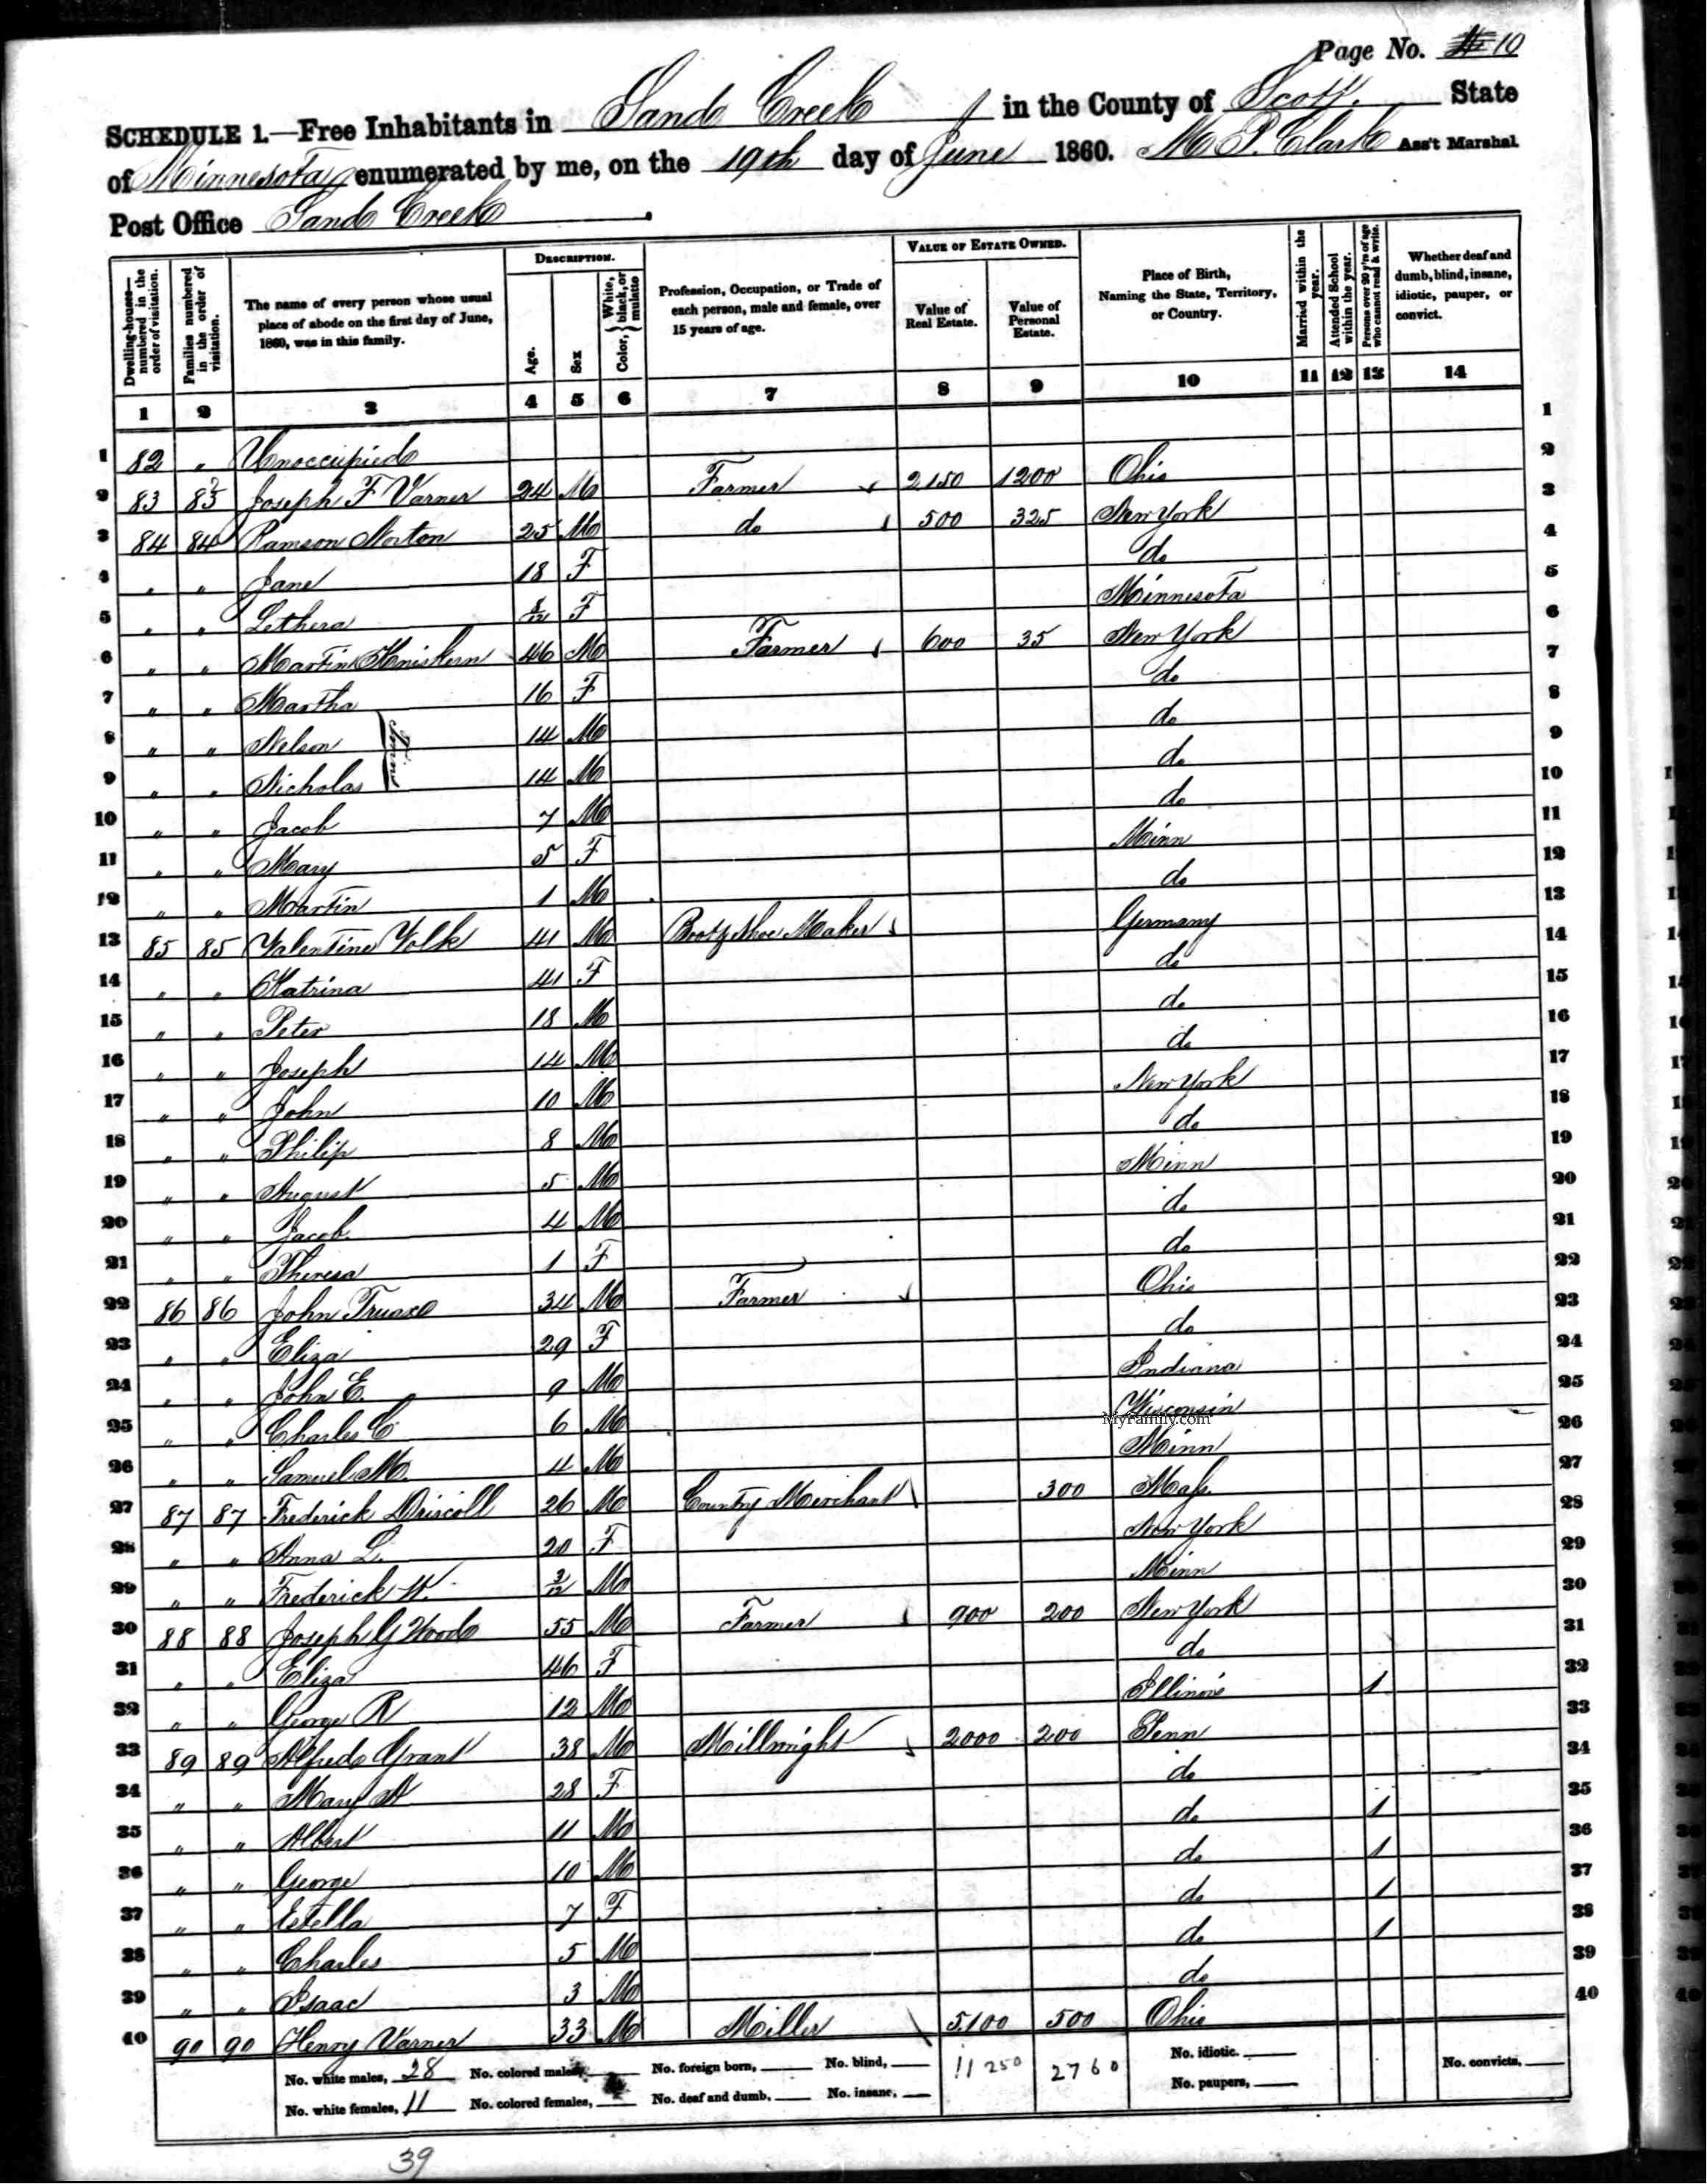 Page No. 10
SCHEDULE 1.—Free Inhabitants in Sand Creek in the County of Scott State
of Minnesota enumerated by me, on the 19th day of June 1860. M P. Clark Ass't Marshal
Post Office Sand Creek
Dwelling-houses—numbered in the order of visitation.
Families numbered in the order of visitation.
The name of every person whose usual place of abode on the first day of June, 1860, was in this family.
DESCRIPTION.
Age.
Sex
Color, White, black, or mulatto
Profession, Occupation, or Trade of each person, male and female, over 15 years of age.
VALUE OF ESTATE OWNED.
Value of Real Estate.
Value of Personal Estate.
Place of Birth, Naming the State, Territory, or Country.
Married within the year.
Attended School within the year.
Persons over 20 y'rs of age who cannot read & write.
Whether deaf and dumb, blind, insane, idiotic, pauper, or convict.
1 2 3 4 5 6 7 8 9 10 11 12 13 14
1 82 " Unoccupied 1
2 83 83 Joseph F Varner 24 M Farmer 2150 1200 Ohio 2
3 84 84 Ramson Norton 25 M do 500 325 New York 3
4 " " Jane 18 F do 4
5 " " Lethera F Minnesota 5
6 " " Martin Kniskern 46 M Farmer 600 35 New York 6
7 " " Martha 16 F do 7
8 " " Nelson 14 M do 8
9 " " Nicholas 14 M do 9
10 " " Jacob 7 M do 10
11 " " Mary 5 F Minn 11
12 " " Martin 1 M do 12
13 85 85 Valentine Volk 41 M Boot & Shoe Maker Germany 13
14 " " Katrina 41 F do 14
15 " " Peter 18 M do 15
16 " " Joseph 14 M do 16
17 " " John 10 M New York 17
18 " " Philip 8 M do 18
19 " " August 5 M Minn 19
20 " " Jacob 4 M do 20
21 " " Theresa 1 F do 21
22 86 86 John Truax 34 M Farmer Ohio 22
23 " " Eliza 29 F do 23
24 " " John E. 9 M Indiana 24
25 " " Charles C 6 M Wisconsin 25
MyFamily.com
26 " " Samuel M. 4 M Minn 26
27 87 87 Frederick Driscoll 26 M Country Merchant 300 Mass. 27
28 " " Anna L. 20 F New York 28
29 " " Frederick W. 3/12 M Minn 29
30 88 88 Joseph G Wood 55 M Farmer 900 200 New York 30
31 " " Eliza 46 F do 31
32 " " George R 12 M Illinois 1 32
33 89 89 Alfred Grant 38 M Millwright 2000 200 Penn 33
34 " " Mary A 28 F do 34
35 " " Albert 11 M do 1 35
36 " " George 10 M do 1 36
37 " " Estella 7 F do 1 37
38 " " Charles 5 M do 1 38
39 " " Isaac 3 M do 39
40 90 90 Henry Varner 33 M Miller 5100 500 Ohio 40
No. white males, 28 No. colored males, No. foreign born, No. blind, 11250 2760 No. idiotic. No. convicts,
No. white females, 11 No. colored females, No. deaf and dumb, No. insane, No. paupers,
39